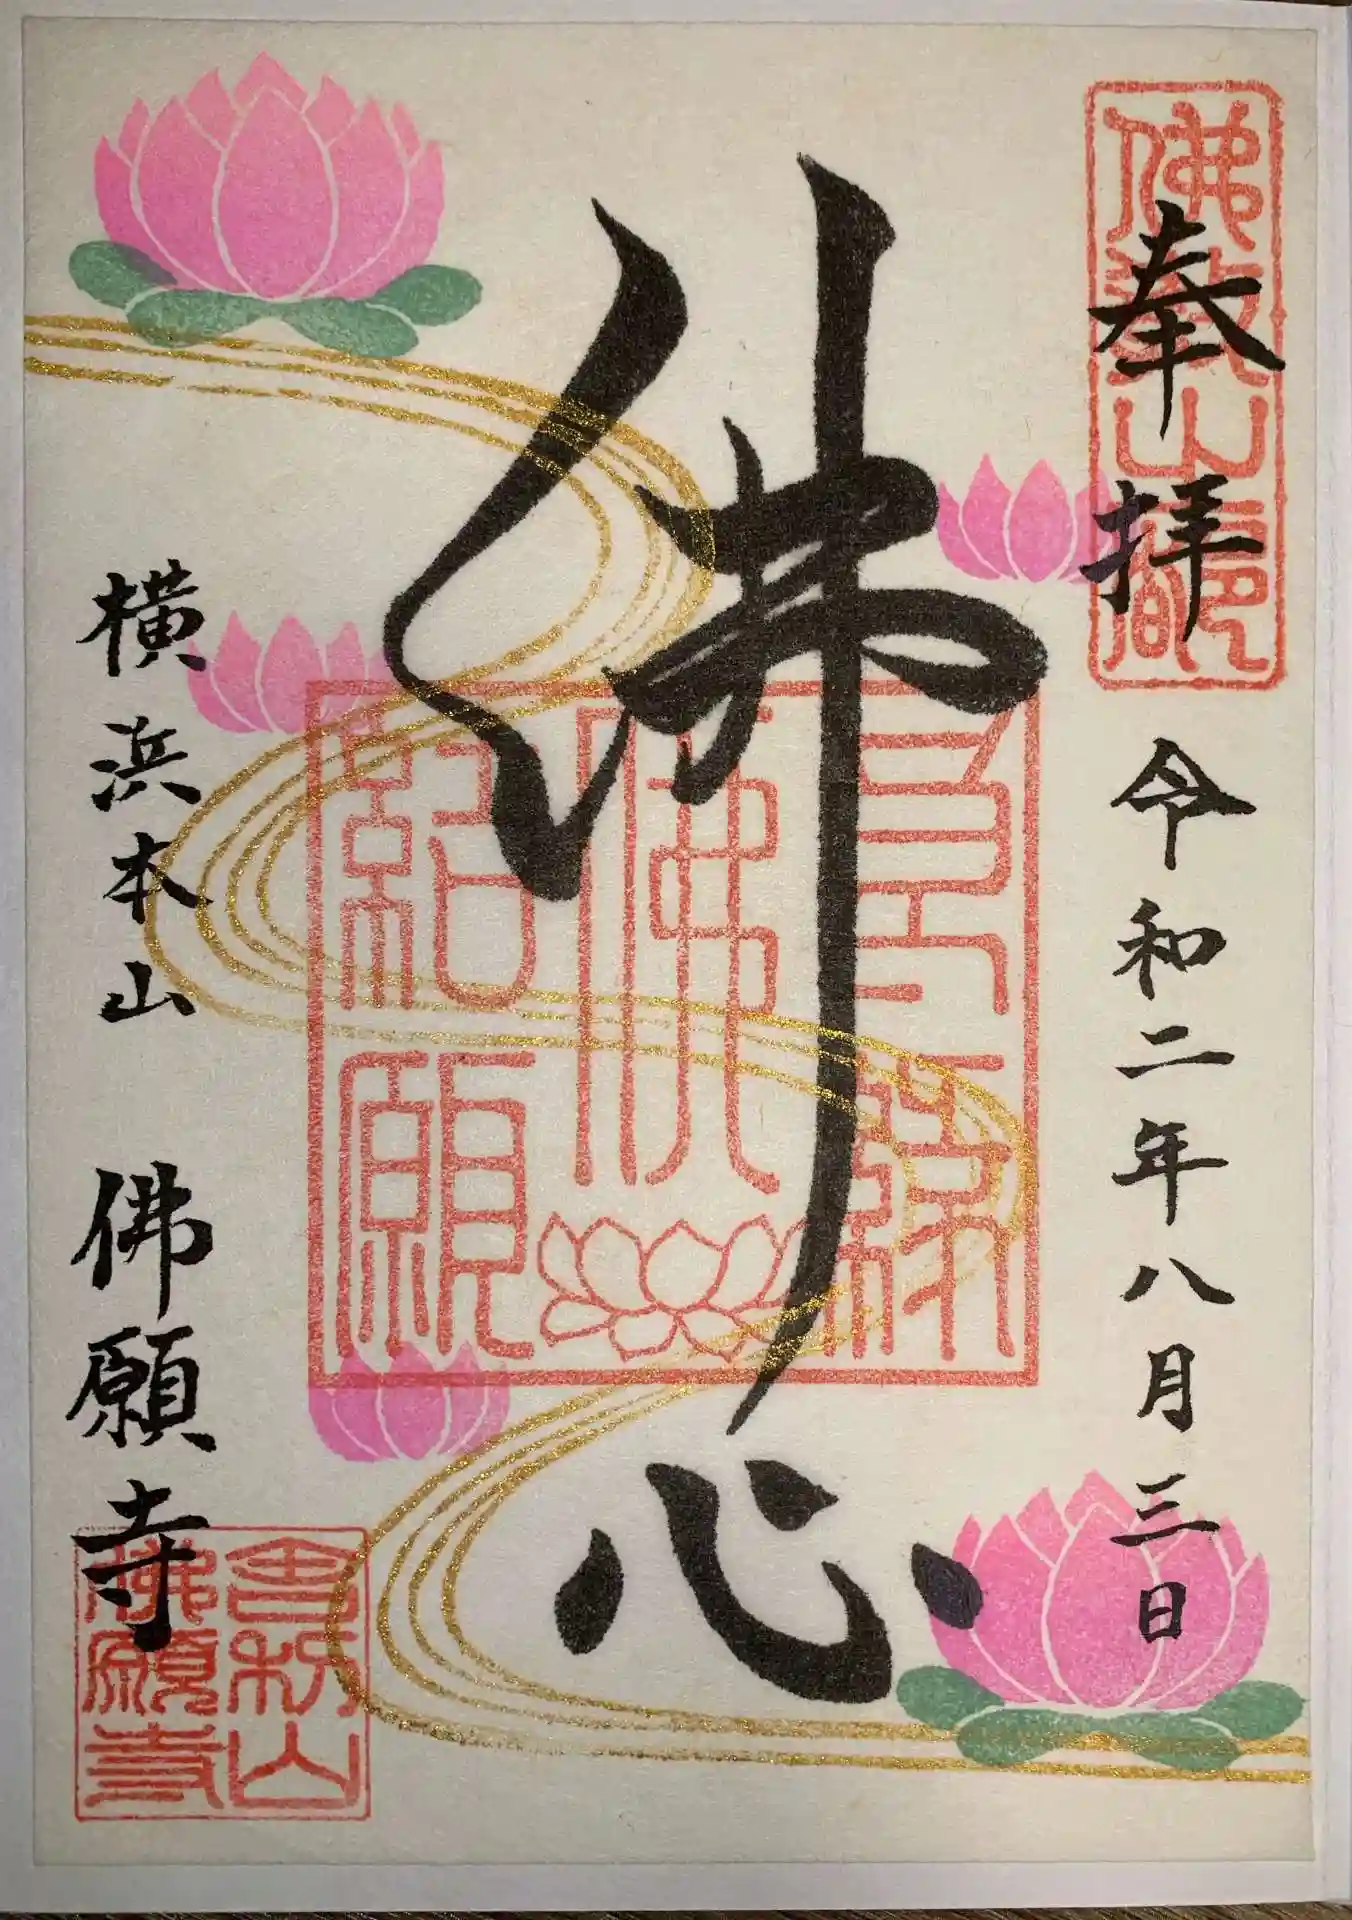 奉拝
令和二年八月三日
佛心
横浜本山　佛願寺
舎利山
佛願寺